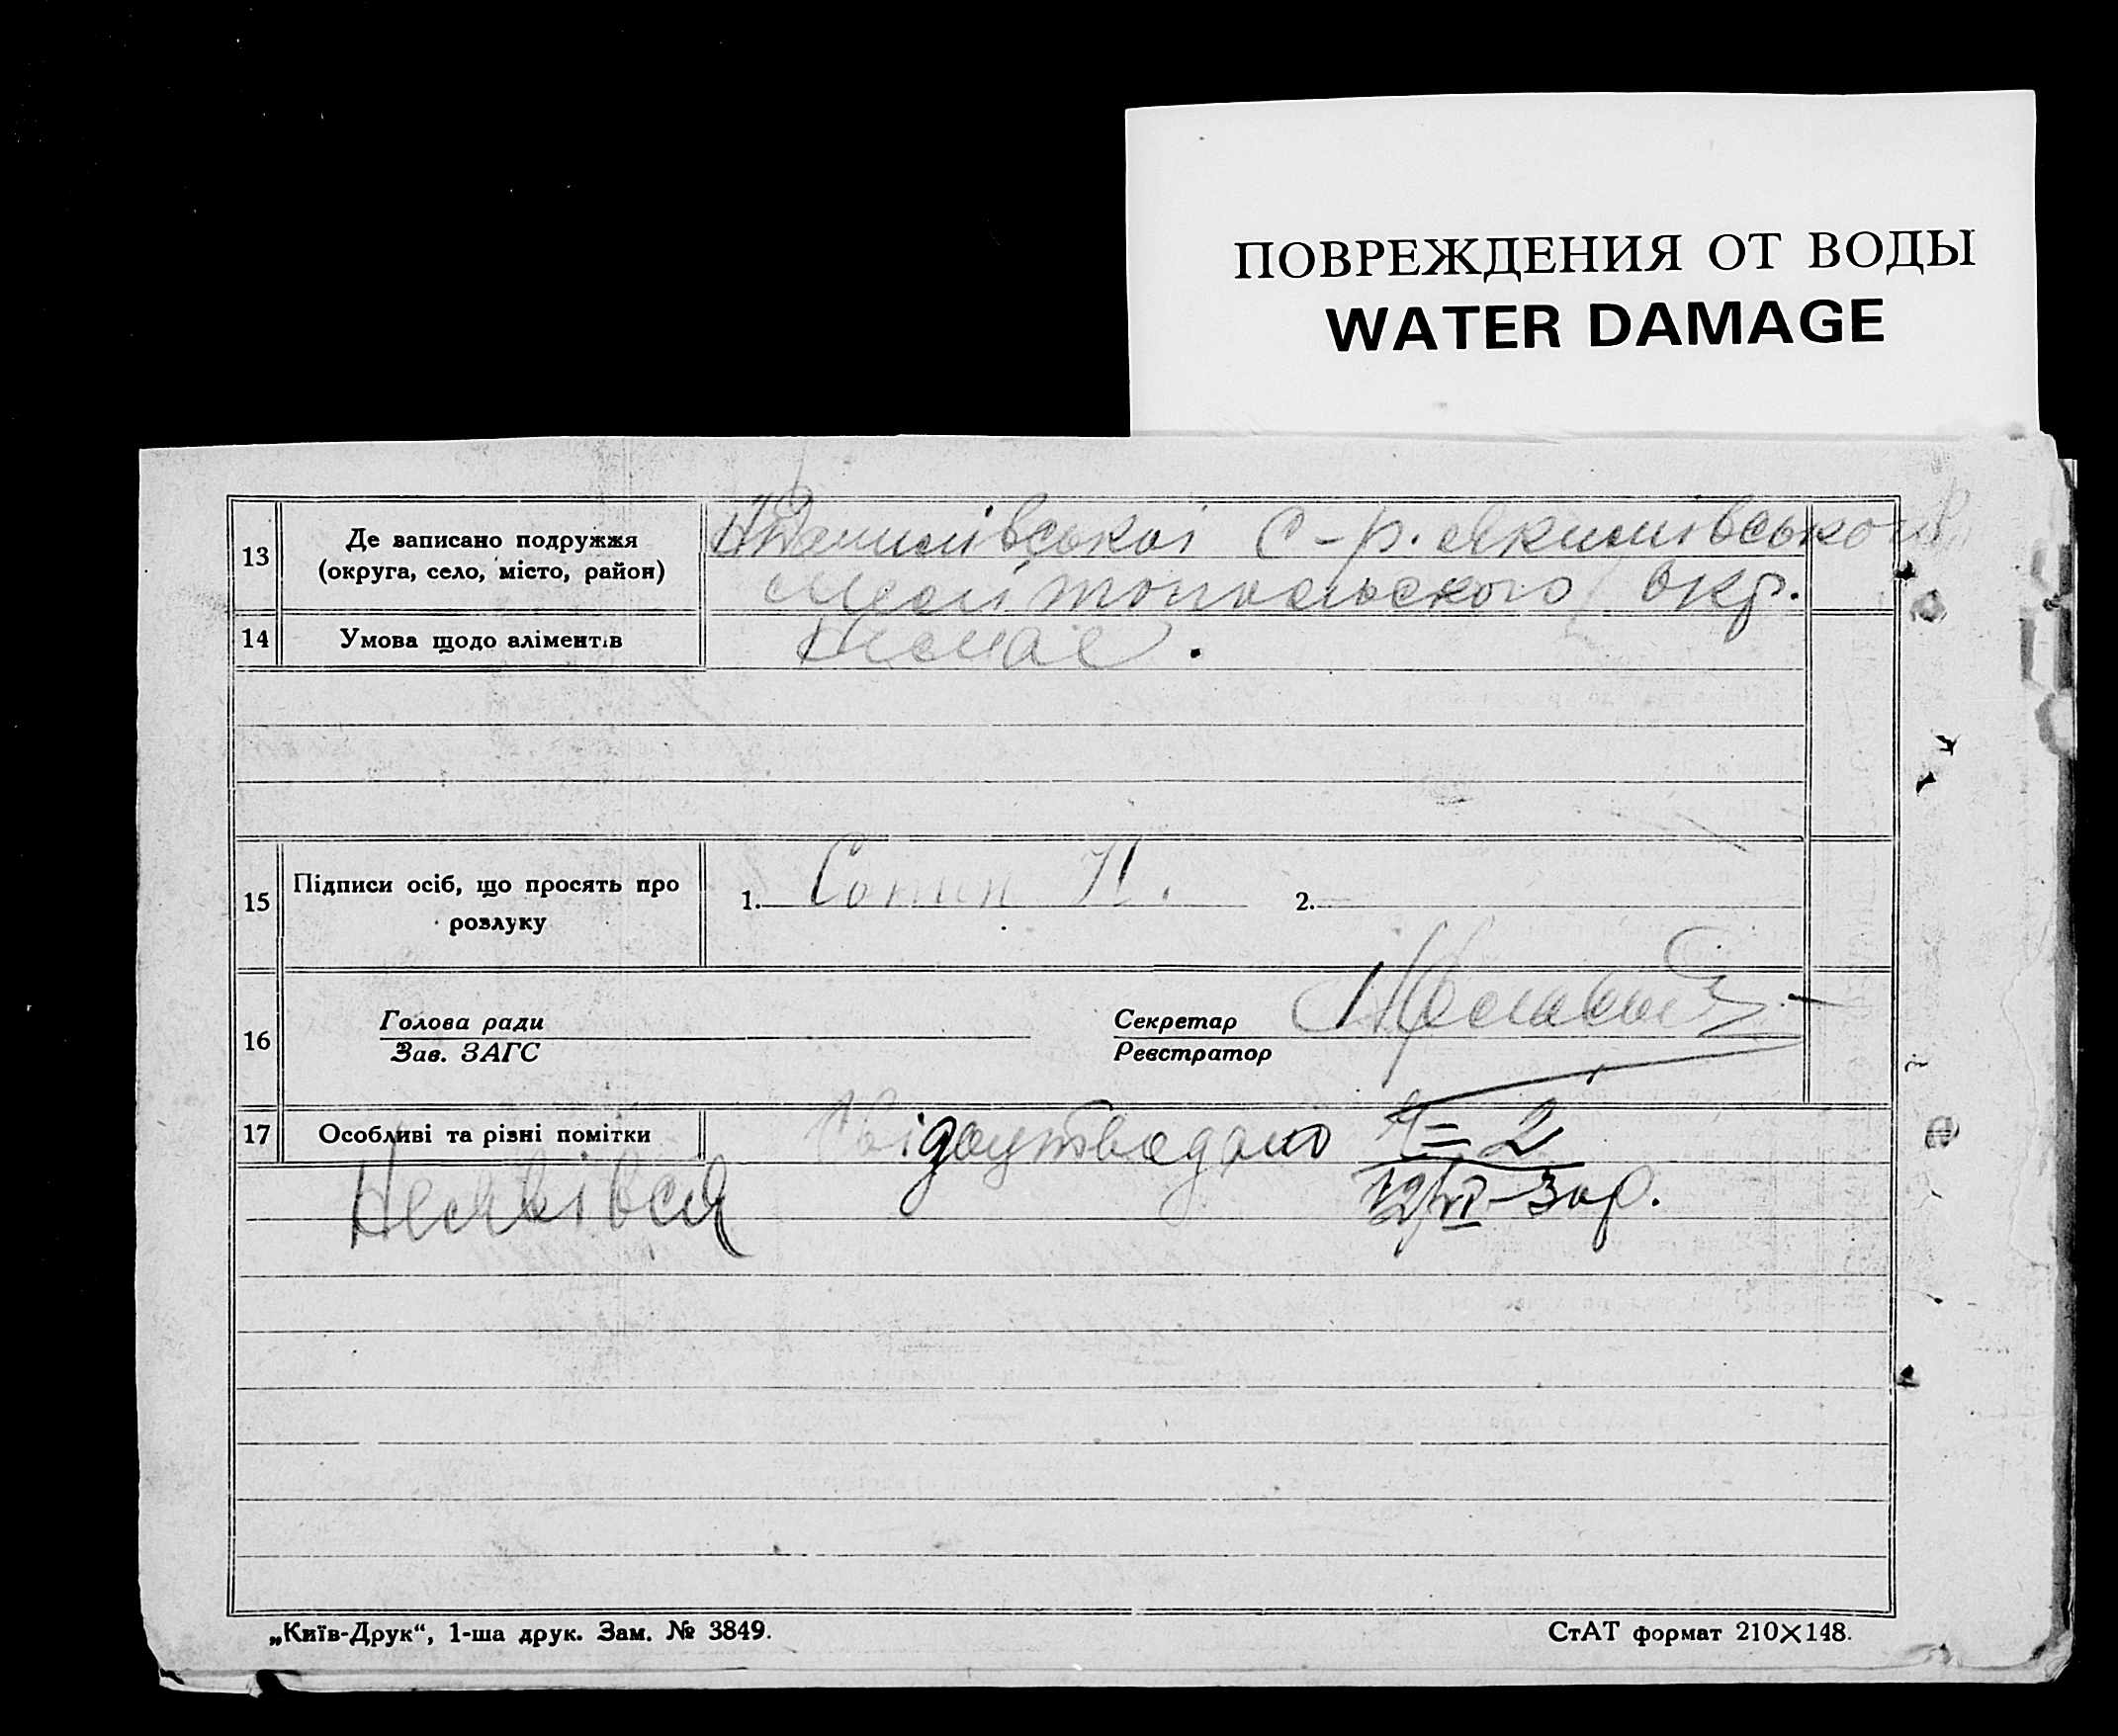 ПОВРЕЖДЕНИЯ ОТ ВОДЫ
WATER DAMAGE
13
Де записано подружжя
(округа, село, місто, район)
С-р. Якимівського
Мелітопольского окр.
14
Умова щодо аліментів
Немає.
15
Підписи осіб, що просять про
розлуку
1.
Н.
2.
16
Голова ради
Зав. ЗАГС
Секретар
Реєстратор
17
Особливі та різні помітки
№ 2
12/VI-30 р.
Неявівся
„Київ-Друк“, 1-ша друк. Зам. № 3849.
СтАТ формат 210×148.